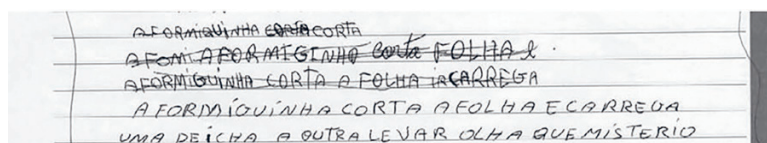 A FORMIQUINHA CORTA CORTA
A FOMI A FORMIGINHO corta FOLHA e.
A FORMIGUINHA CORTA A FOLHA I CARREGA
A FORMIQUINHA CORTA A FOLHA E CARREGA
UMA DEICHA A OUTRA LEVAR OLHA QUE MISTERIO